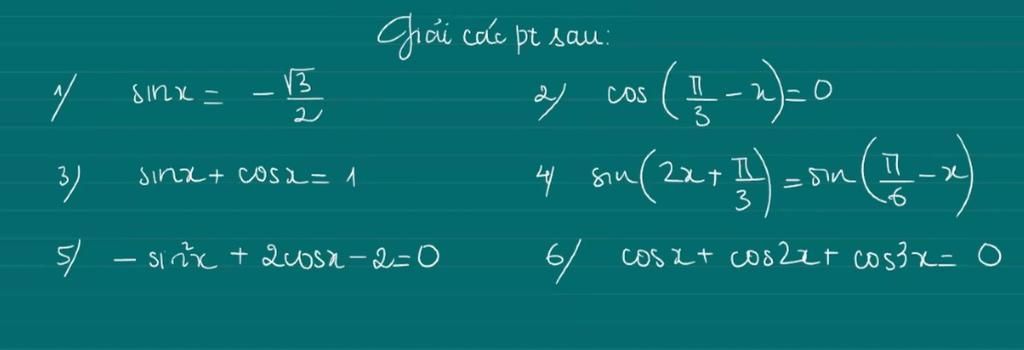 Giải các pt sau:
1/ sinx = -√3/2 2/ cos(π/3 - x) = 0
3) sinx + cosx = 1 4/ sin(2x + π/3) = sin(π/6 - x)
5/ - sin²x + 2cosx - 2 = 0 6/ cosx + cos2x + cos3x = 0